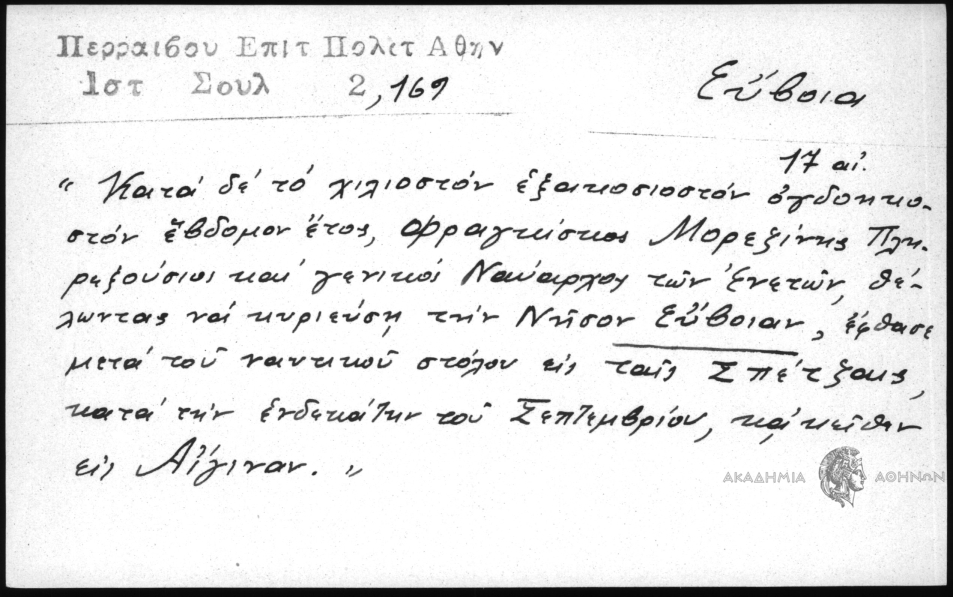 Περραιβου Επιτ Πολιτ Αθην
1στ Σουλ 2,169
Εὔβοια
17 αἰ.
"Κατά δέ τό χιλιοστόν ἑξακοσιοστόν ὀγδοηκο-
στόν ἕβδομον ἔτος, ὁ Φραγκίσκος Μορεζίνης Πλη-
ρεξούσιος καί γενικός Ναύαρχος τῶν Ἑνετῶν, θέ-
λωντας νά κυριεύση τήν Νῆσον Εὔβοιαν, ἔφθασε
μετά τοῦ ναυτικοῦ στόλου εἰς ταῖς Σπέτζαις,
κατά τήν ἑνδεκάτην τοῦ Σεπτεμβρίου, κᾀκεῖθεν
εἰς Αἴγιναν."
ΑΚΑΔΗΜΙΑ ΑΘΗΝΩΝ